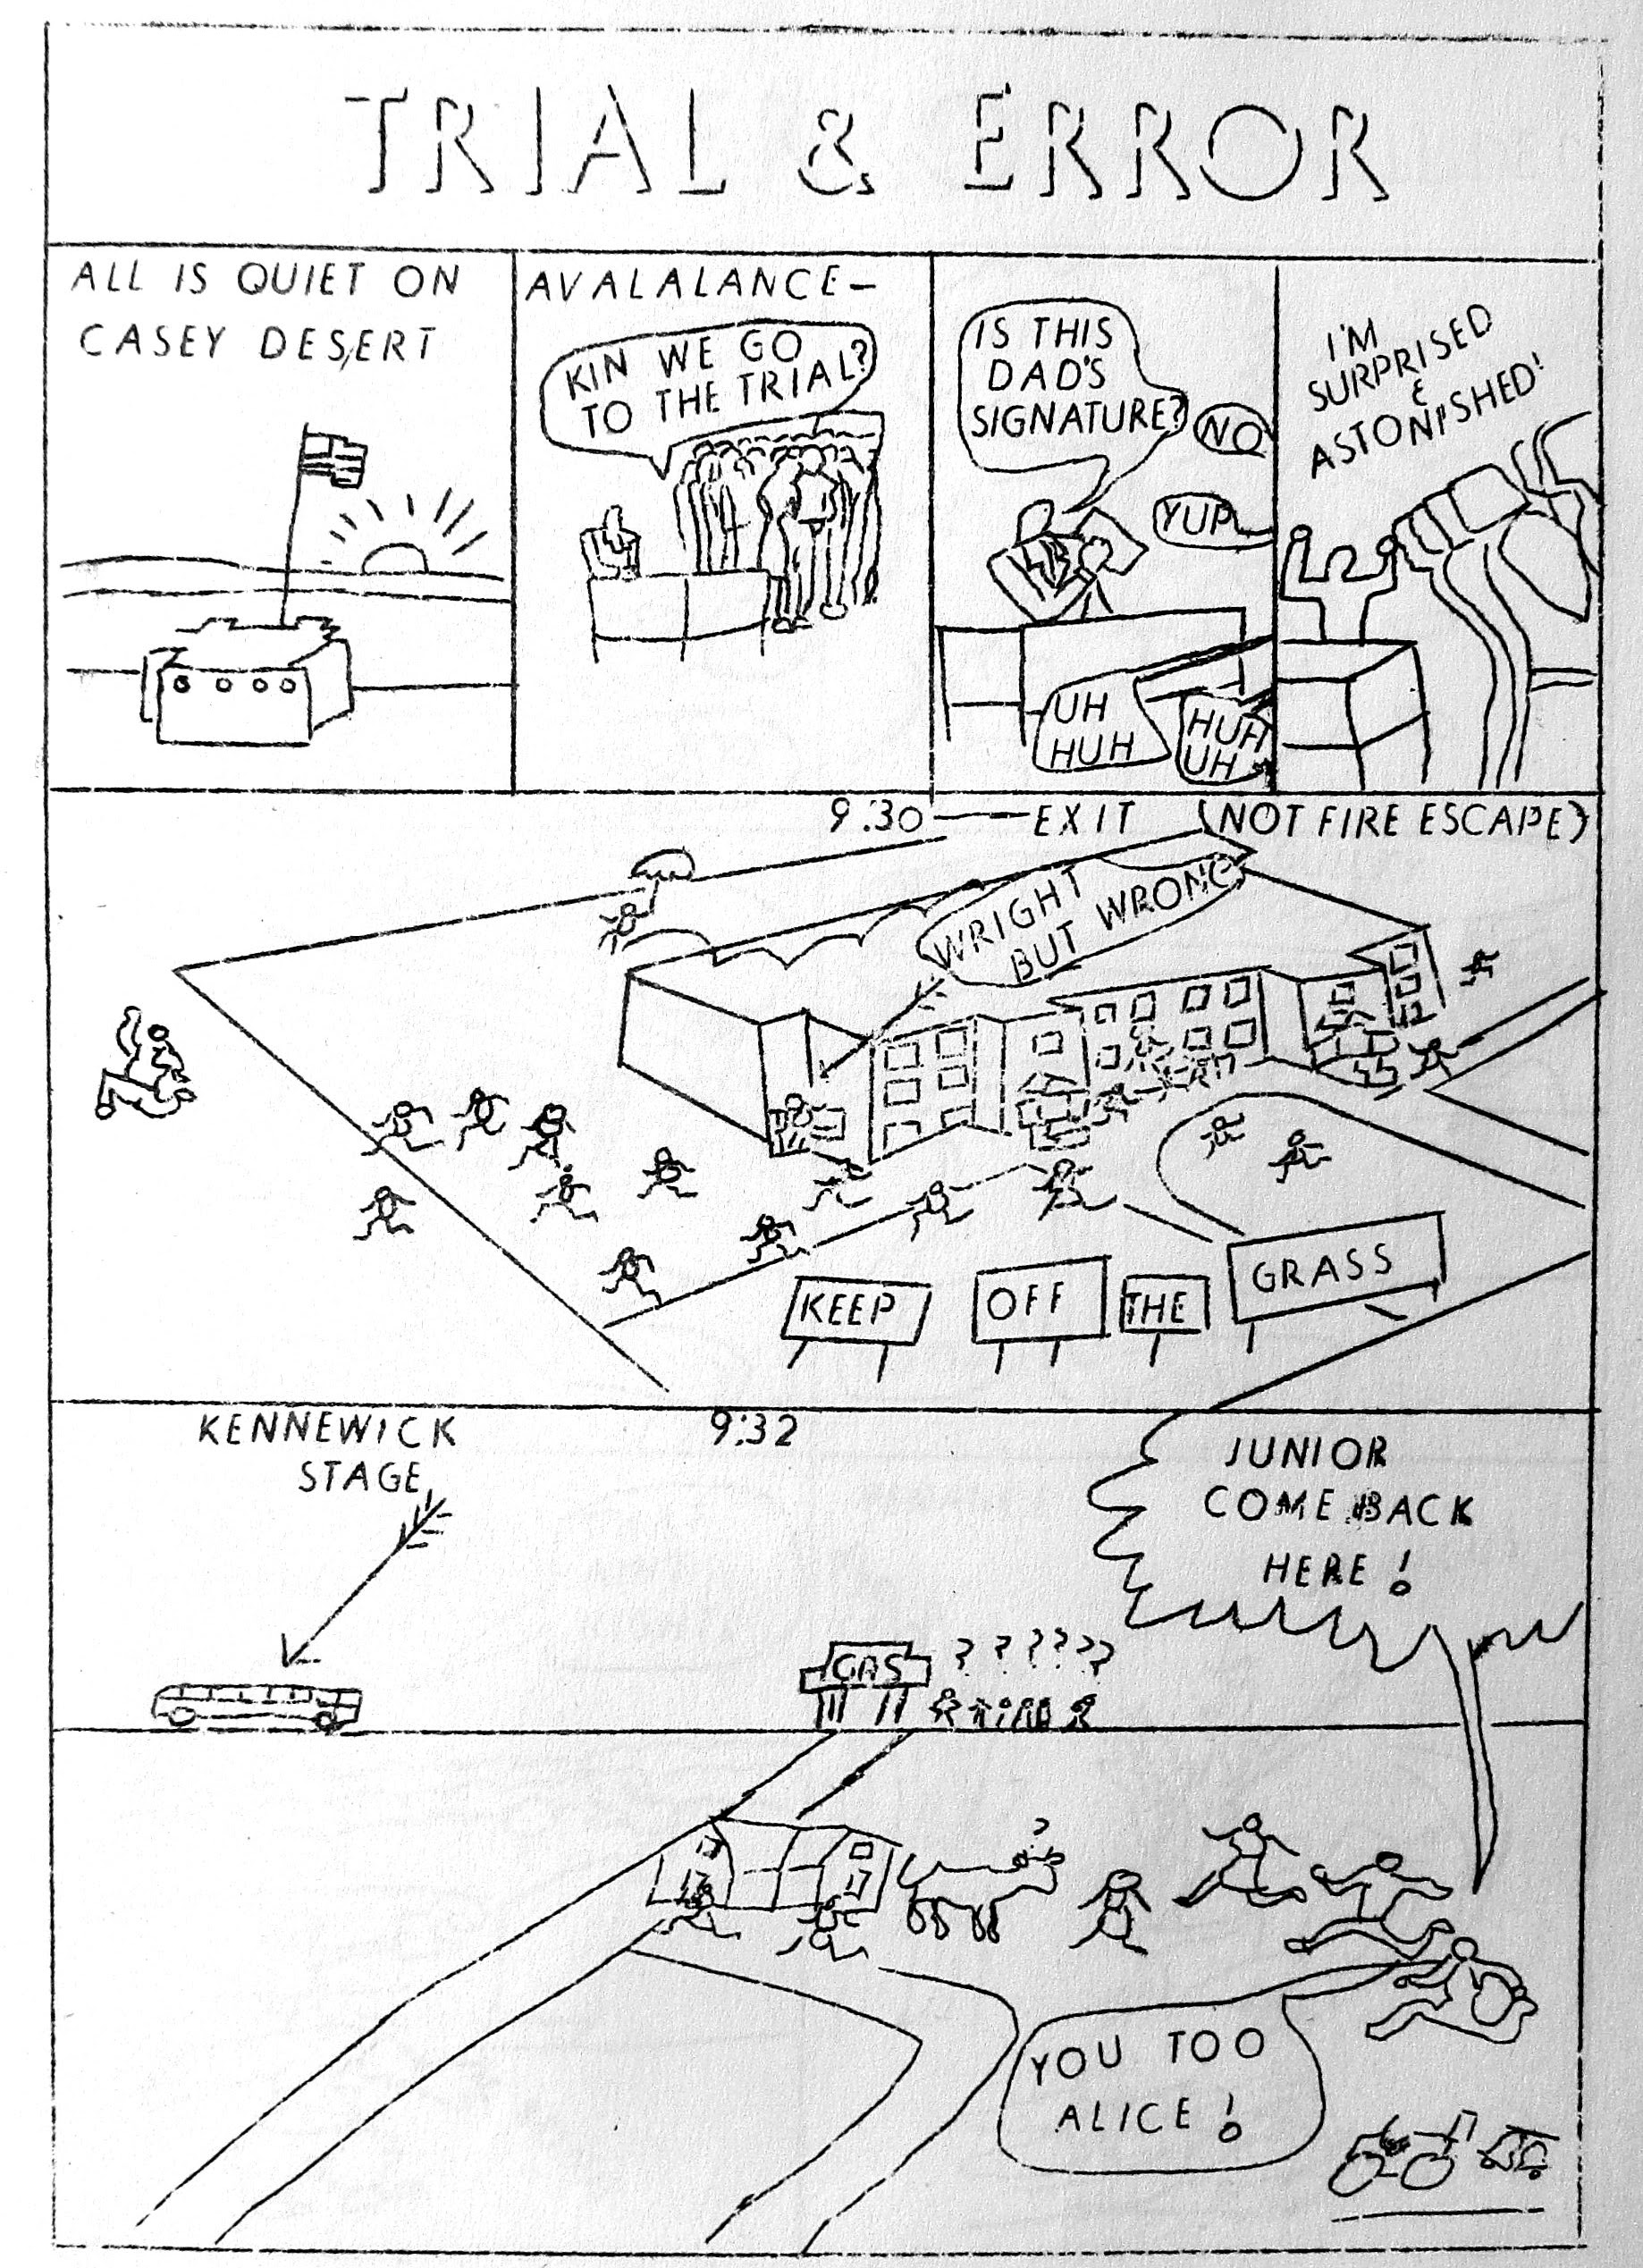 TRIAL & ERROR
ALL IS QUIET ON
CASEY DESERT
AVALALANCE-
KIN WE GO
TO THE TRIAL?
IS THIS
DAD'S
SIGNATURE?
NO
YUP
UH
HUH
HUH
UH
I'M
SURPRISED
&
ASTONISHED!
9:30 — EXIT (NOT FIRE ESCAPE)
WRIGHT
BUT WRONG
KEEP OFF THE GRASS
KENNEWICK
STAGE
9:32
JUNIOR
COME BACK
HERE!
GAS
? ? ? ? ? ?
?
YOU TOO
ALICE!